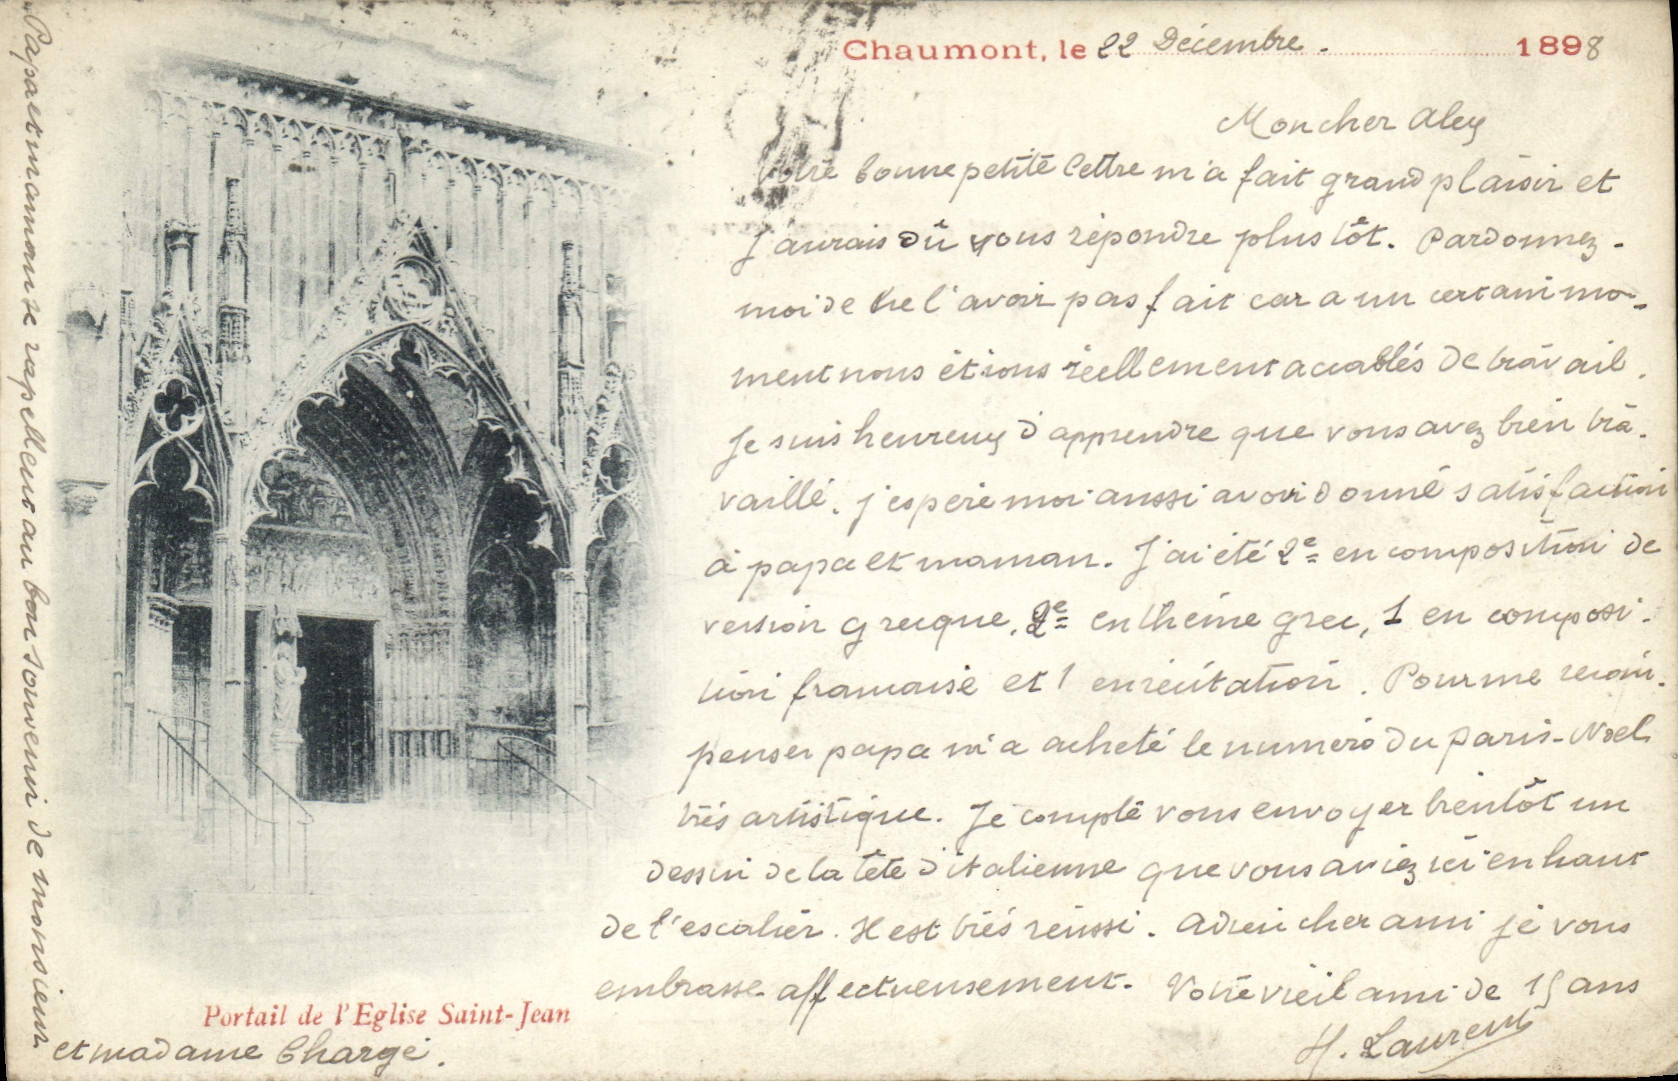 Chaumont, le 22 Décembre. 1898
Mon cher Alex
Votre bonne petite lettre m'a fait grand plaisir et
J'aurais dû vous répondre plus tôt. Pardonnez-
moi de ne l'avoir pas fait car a un certain mo-
ment nous étions réellement accablés de travail.
Je suis heureux d'apprendre que vous avez bien tra-
vaillé. j'espère moi aussi avoir donné satisfaction
à papa et maman. J'ai été 2e en composition de
version grecque, 2e en thème grec, 1 en composi-
tion francaise et 1 en récitation. Pour me récom-
penser papa m'a acheté le numéro du Paris-Noel
très artistique. Je compte vous envoyer bientôt un
dessin de la tête d'italienne que vous aviez ici en haut
de l'escalier. Il est très réussi. Adieu cher ami je vous
embrasse affectueusement. Votre vieil ami de 15 ans
H. Laurent
Papa et maman se rapellent au bon souvenir de monsieur
et madame Chargé.
Portail de l'Eglise Saint-Jean